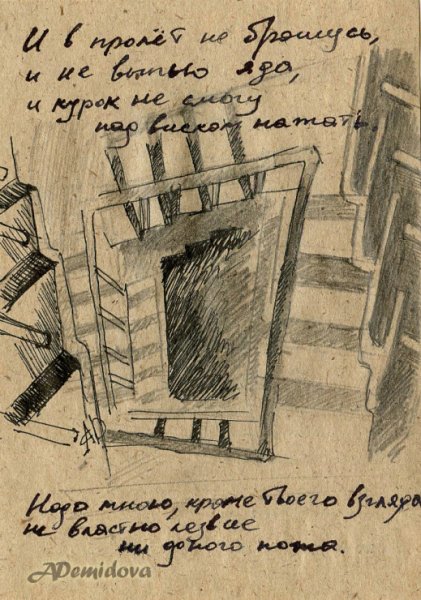 И в пролёт не брошусь,
и не выпью яда,
и курок не смогу
над виском нажать.
Надо мною, кроме твоего взгляда
не властно лезвие
ни одного ножа.
ADemidova